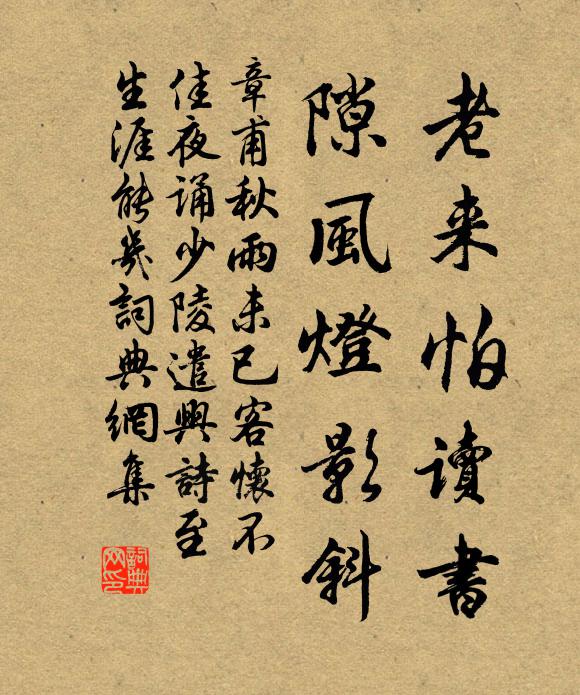 老来怕讀書
隙風燈影斜
章甫秋雨未已客懷不
佳夜诵少陵遣興詩至
生涯能幾詞典網集
詞典网印